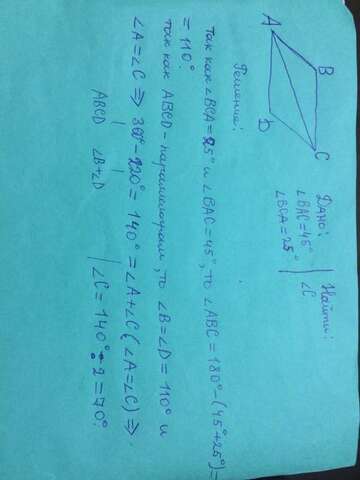 A
B
C
D
Дано:
∠BAC=45°
∠BCA=25°
Найти:
∠C
Решение:
Так как ∠BCA=25° и ∠BAC=45°, то ∠ABC=180°-(45°+25°)=
=110°.
так как ABCD-параллелограм, то ∠B=∠D=110° и
∠A=∠C => 360°-220°=140°=∠A+∠C (∠A=∠C) =>
ABCD ∠B+∠D ∠C=140°:2=70°.